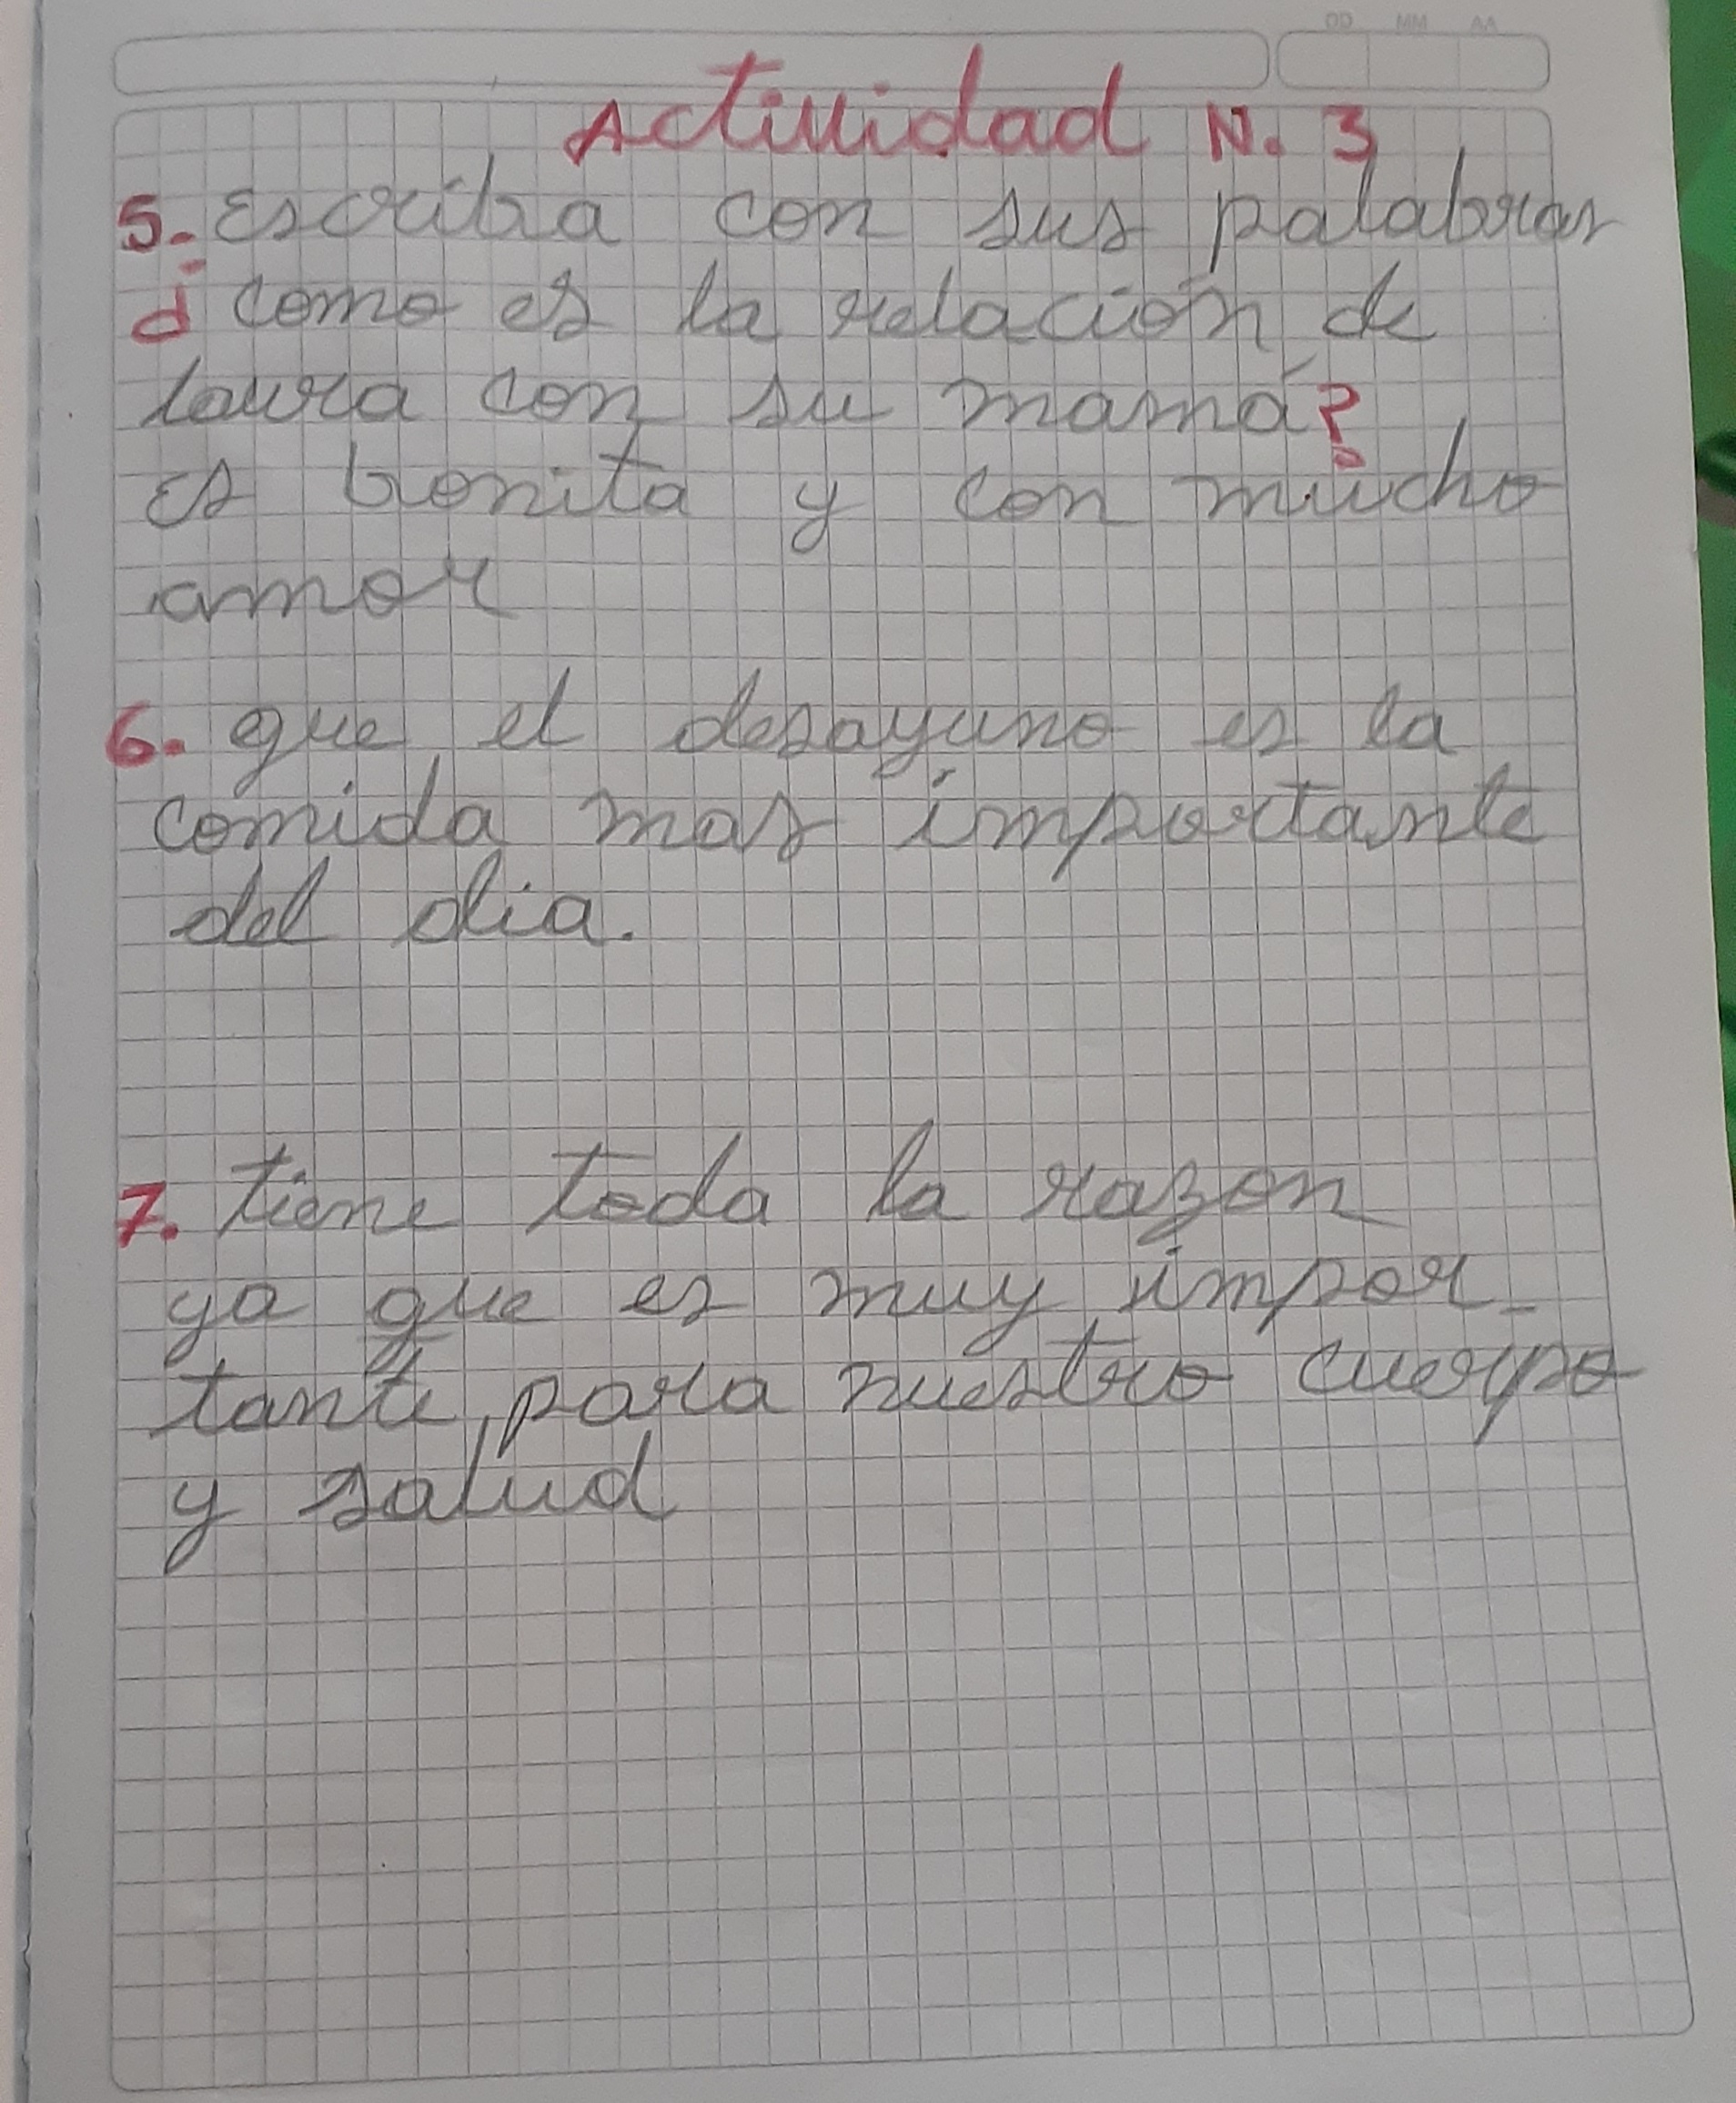 DD MM AA
Actividad N. 3
5. Escriba con sus palabras
¿ como es la relación de
laura con su mamá?
es bonita y con mucho
amor
6. que el desayuno es la
comida mas importante
del dia.
7. tiene toda la razon
ya que es muy impor-
tante, para nuestro cuerpo
y salud